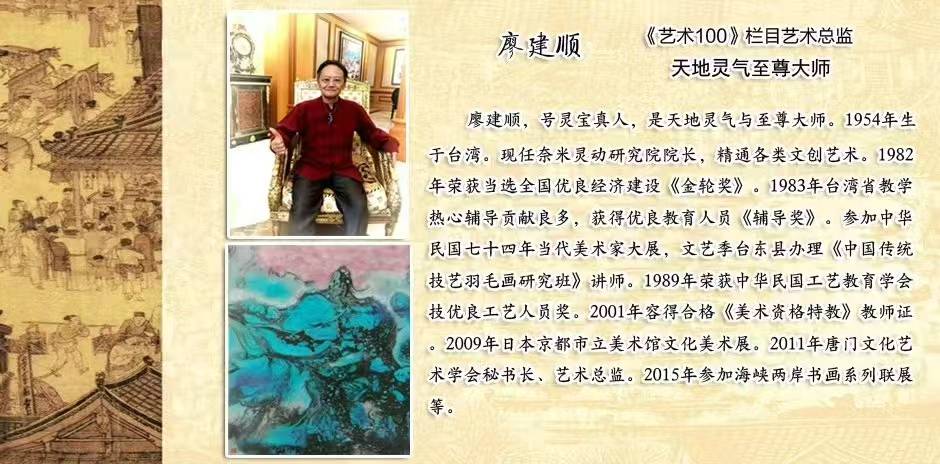 廖建顺
《艺术100》栏目艺术总监
天地灵气至尊大师
廖建顺，号灵宝真人，是天地灵气与至尊大师。1954年生
于台湾。现任奈米灵动研究院院长，精通各类文创艺术。1982
年荣获当选全国优良经济建设《金轮奖》。1983年台湾省教学
热心辅导贡献良多，获得优良教育人员《辅导奖》。参加中华
民国七十四年当代美术家大展，文艺季台东县办理《中国传统
技艺羽毛画研究班》讲师。1989年荣获中华民国工艺教育学会
技优良工艺人员奖。2001年容得合格《美术资格特教》教师证
。2009年日本京都市立美术馆文化美术展。2011年唐门文化艺
术学会秘书长、艺术总监。2015年参加海峡两岸书画系列联展
等。